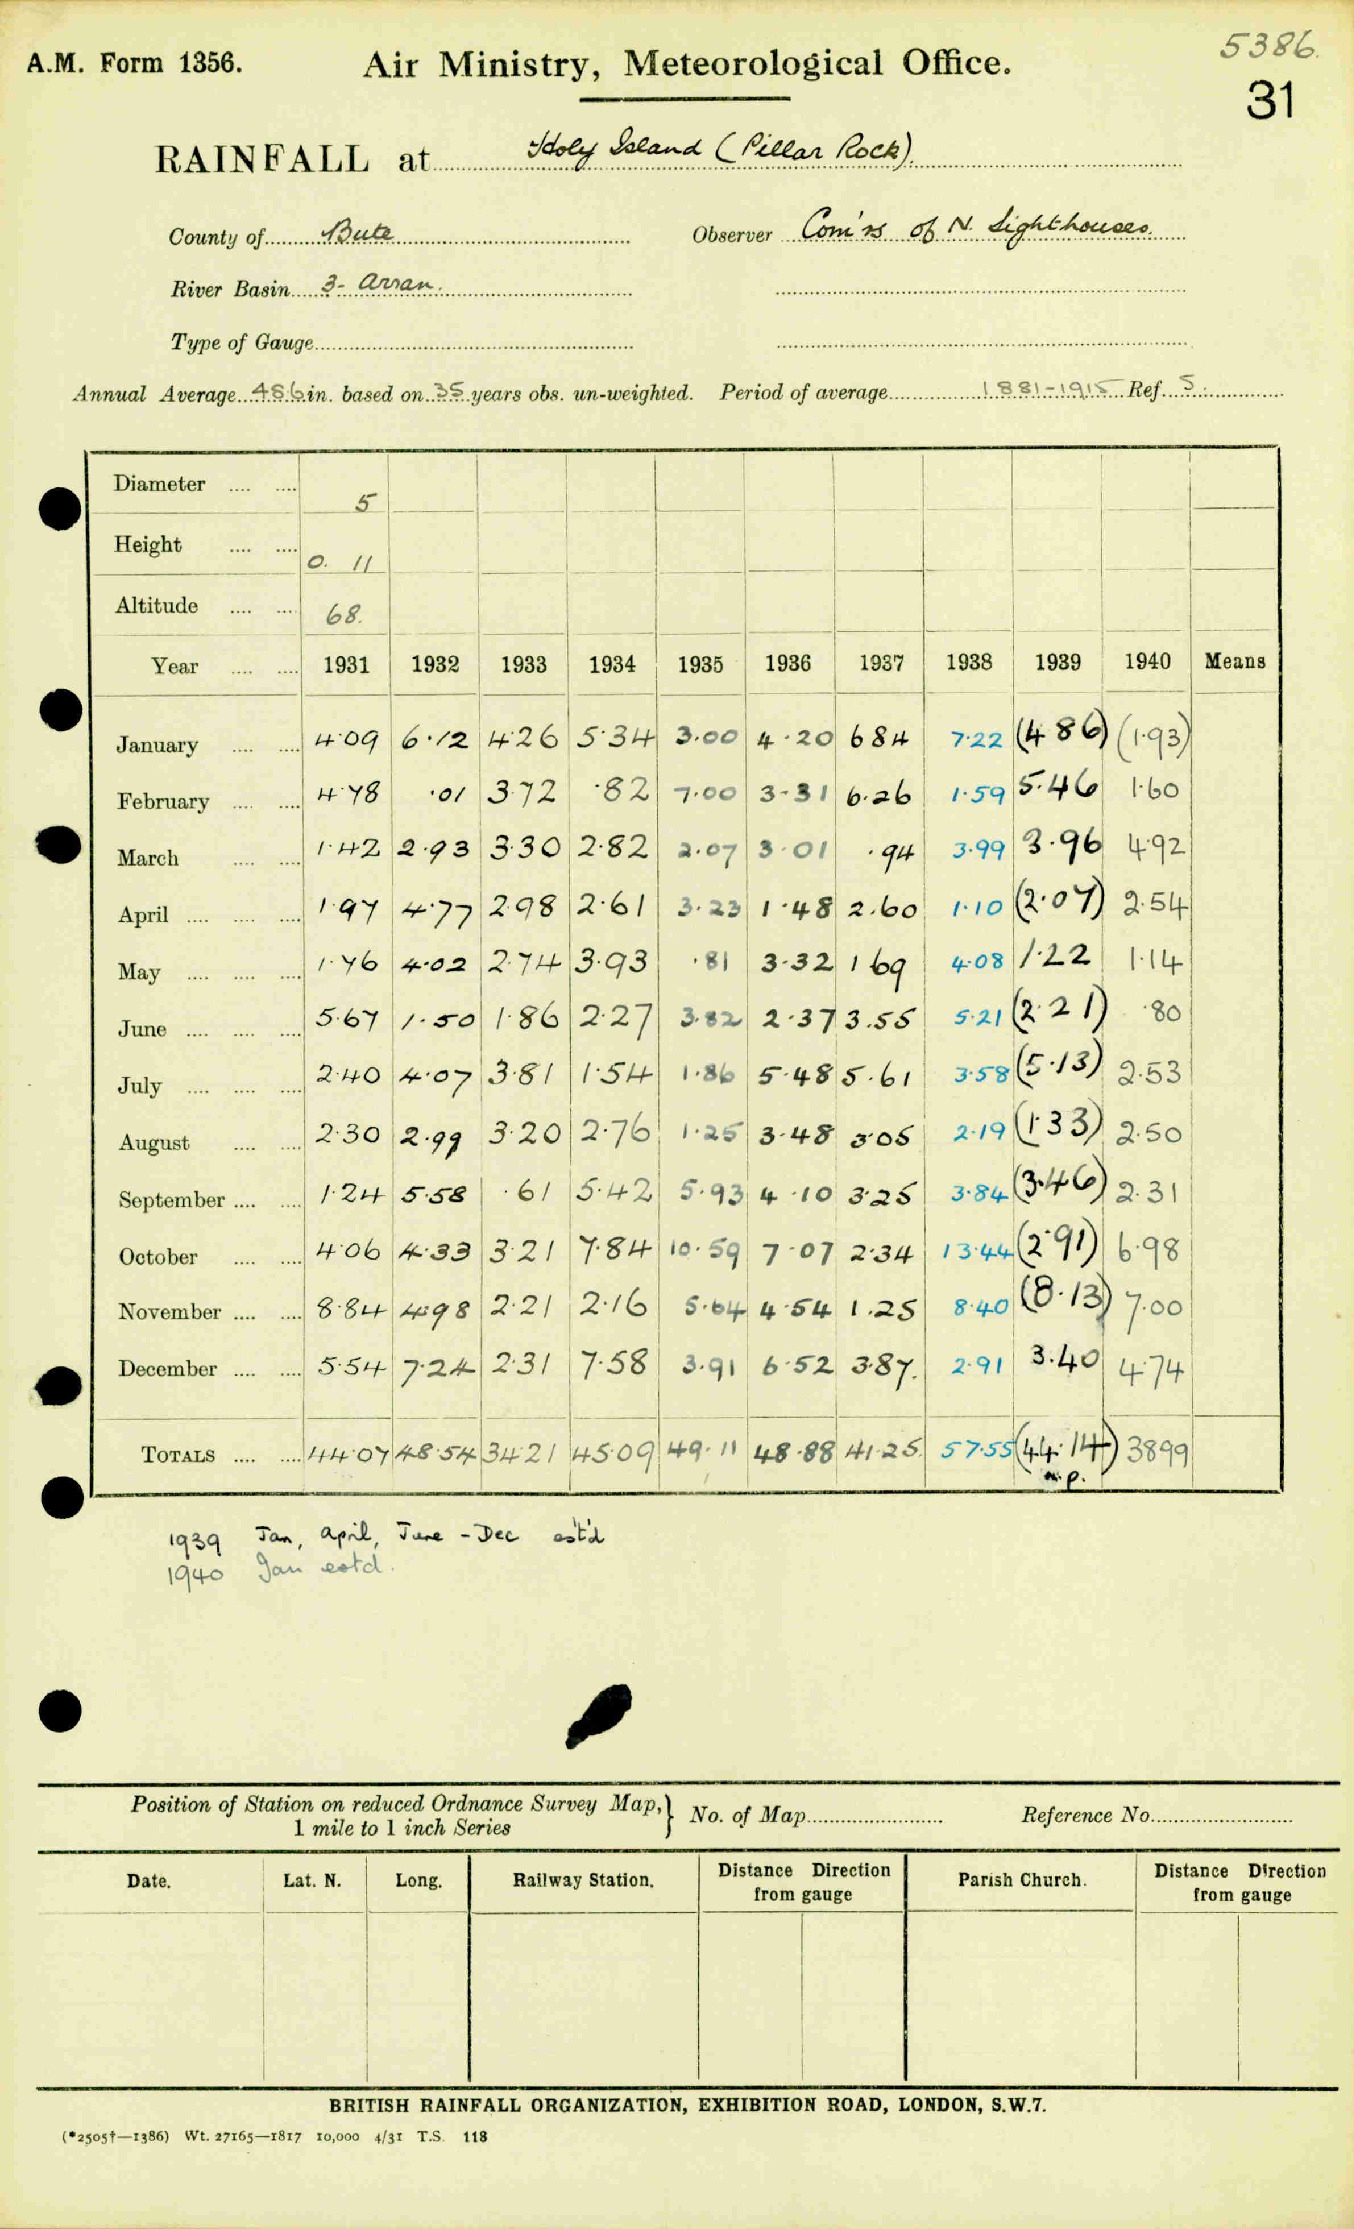 5386.
A.M. Form 1356. Air Ministry, Meteorological Office.
31
RAINFALL at Holy Island (Pillar Rock).
County of Bute Observer Com'rs of N. Lighthouses.
River Basin 3- Arran.
Type of Gauge
Annual Average 48.6 in. based on 35 years obs. un-weighted. Period of average 1881-1915 Ref. 5.
Diameter .... .... 5
Height .... .... 0. 11
Altitude .... .... 68.
Year .... .... 1931 1932 1933 1934 1935 1936 1937 1938 1939 1940 Means
January .... .... 4.09 6.12 4.26 5.34 3.00 4.20 6.84 7.22 (4.86) (1.93)
February .... .... 4.78 .01 3.72 .82 7.00 3.31 6.26 1.59 5.46 1.60
March .... .... 1.42 2.93 3.30 2.82 2.07 3.01 .94 3.99 3.96 4.92
April .... .... .... 1.97 4.77 2.98 2.61 3.23 1.48 2.60 1.10 (2.07) 2.54
May .... .... .... 1.76 4.02 2.74 3.93 .81 3.32 1.69 4.08 1.22 1.14
June .... .... .... 5.67 1.50 1.86 2.27 3.82 2.37 3.55 5.21 (2.21) .80
July .... .... .... 2.40 4.07 3.81 1.54 1.86 5.48 5.61 3.58 (5.13) 2.53
August .... .... 2.30 2.99 3.20 2.76 1.25 3.48 3.05 2.19 (1.33) 2.50
September .... .... 1.24 5.58 .61 5.42 5.93 4.10 3.25 3.84 (3.46) 2.31
October .... .... 4.06 4.33 3.21 7.84 10.59 7.07 2.34 13.44 (2.91) 6.98
November .... .... 8.84 4.98 2.21 2.16 5.64 4.54 1.25 8.40 (8.13) 7.00
December .... .... 5.54 7.24 2.31 7.58 3.91 6.52 3.87. 2.91 3.40 4.74
TOTALS .... .... 44.07 48.54 34.21 45.09 49.11 48.88 41.25. 57.55 (44.14) 38.99
n.p.
1939 Jan, April, June - Dec est'd
1940 Jan estd.
Position of Station on reduced Ordnance Survey Map, } No. of Map Reference No.
1 mile to 1 inch Series
Date. Lat. N. Long. Railway Station. Distance Direction from gauge Parish Church. Distance Direction from gauge
BRITISH RAINFALL ORGANIZATION, EXHIBITION ROAD, LONDON, S.W.7.
(*2505†—1386) Wt. 27165—1817 10,000 4/31 T.S. 118